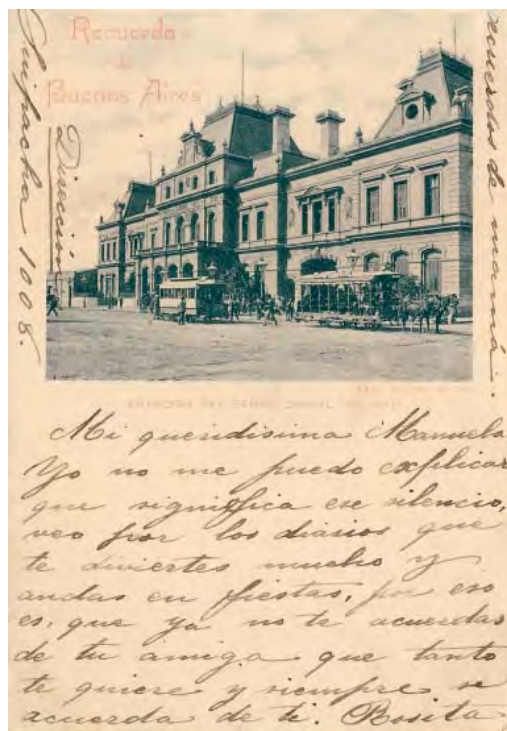 Recuerdo
de
Buenos Aires
Recuerdos de mamá.
Dirección
Suipacha 1008.
Mi queridisima Manuela
Yo no me puedo explicar
que significa ese silencio,
veo por los diarios que
te diviertes mucho y
andas en fiestas, por eso
es, que ya no te acuerdas
de tu amiga que tanto
te quiere y siempre se
acuerda de ti. Rosita